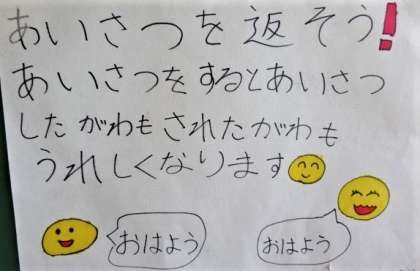 あいさつを返そう!
あいさつをするとあいさつ
したがわもされたがわも
うれしくなります
おはよう
おはよう